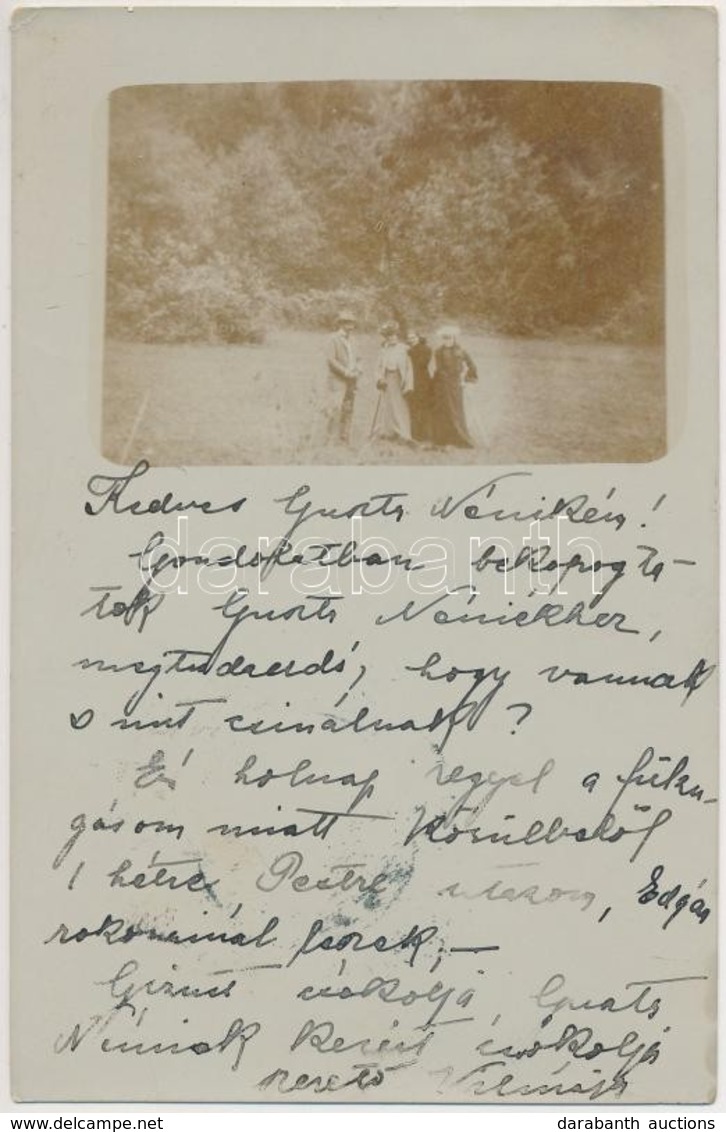 Kedves Guszta Nénikém!
darabanth
Gondolatban bekopogta-
tok Guszta Néniékhez,
megtudandó, hogy vannak
s mit csinálnak?
Én holnap reggel a fülzu-
gásom miatt körülbelül
1 hétre Pestre utazom, Edgár
rokonainál leszek, —
Gizust csókolja, Guszta
Néninek kezeit csókolja
szerető Vilmája
darabanth auctions